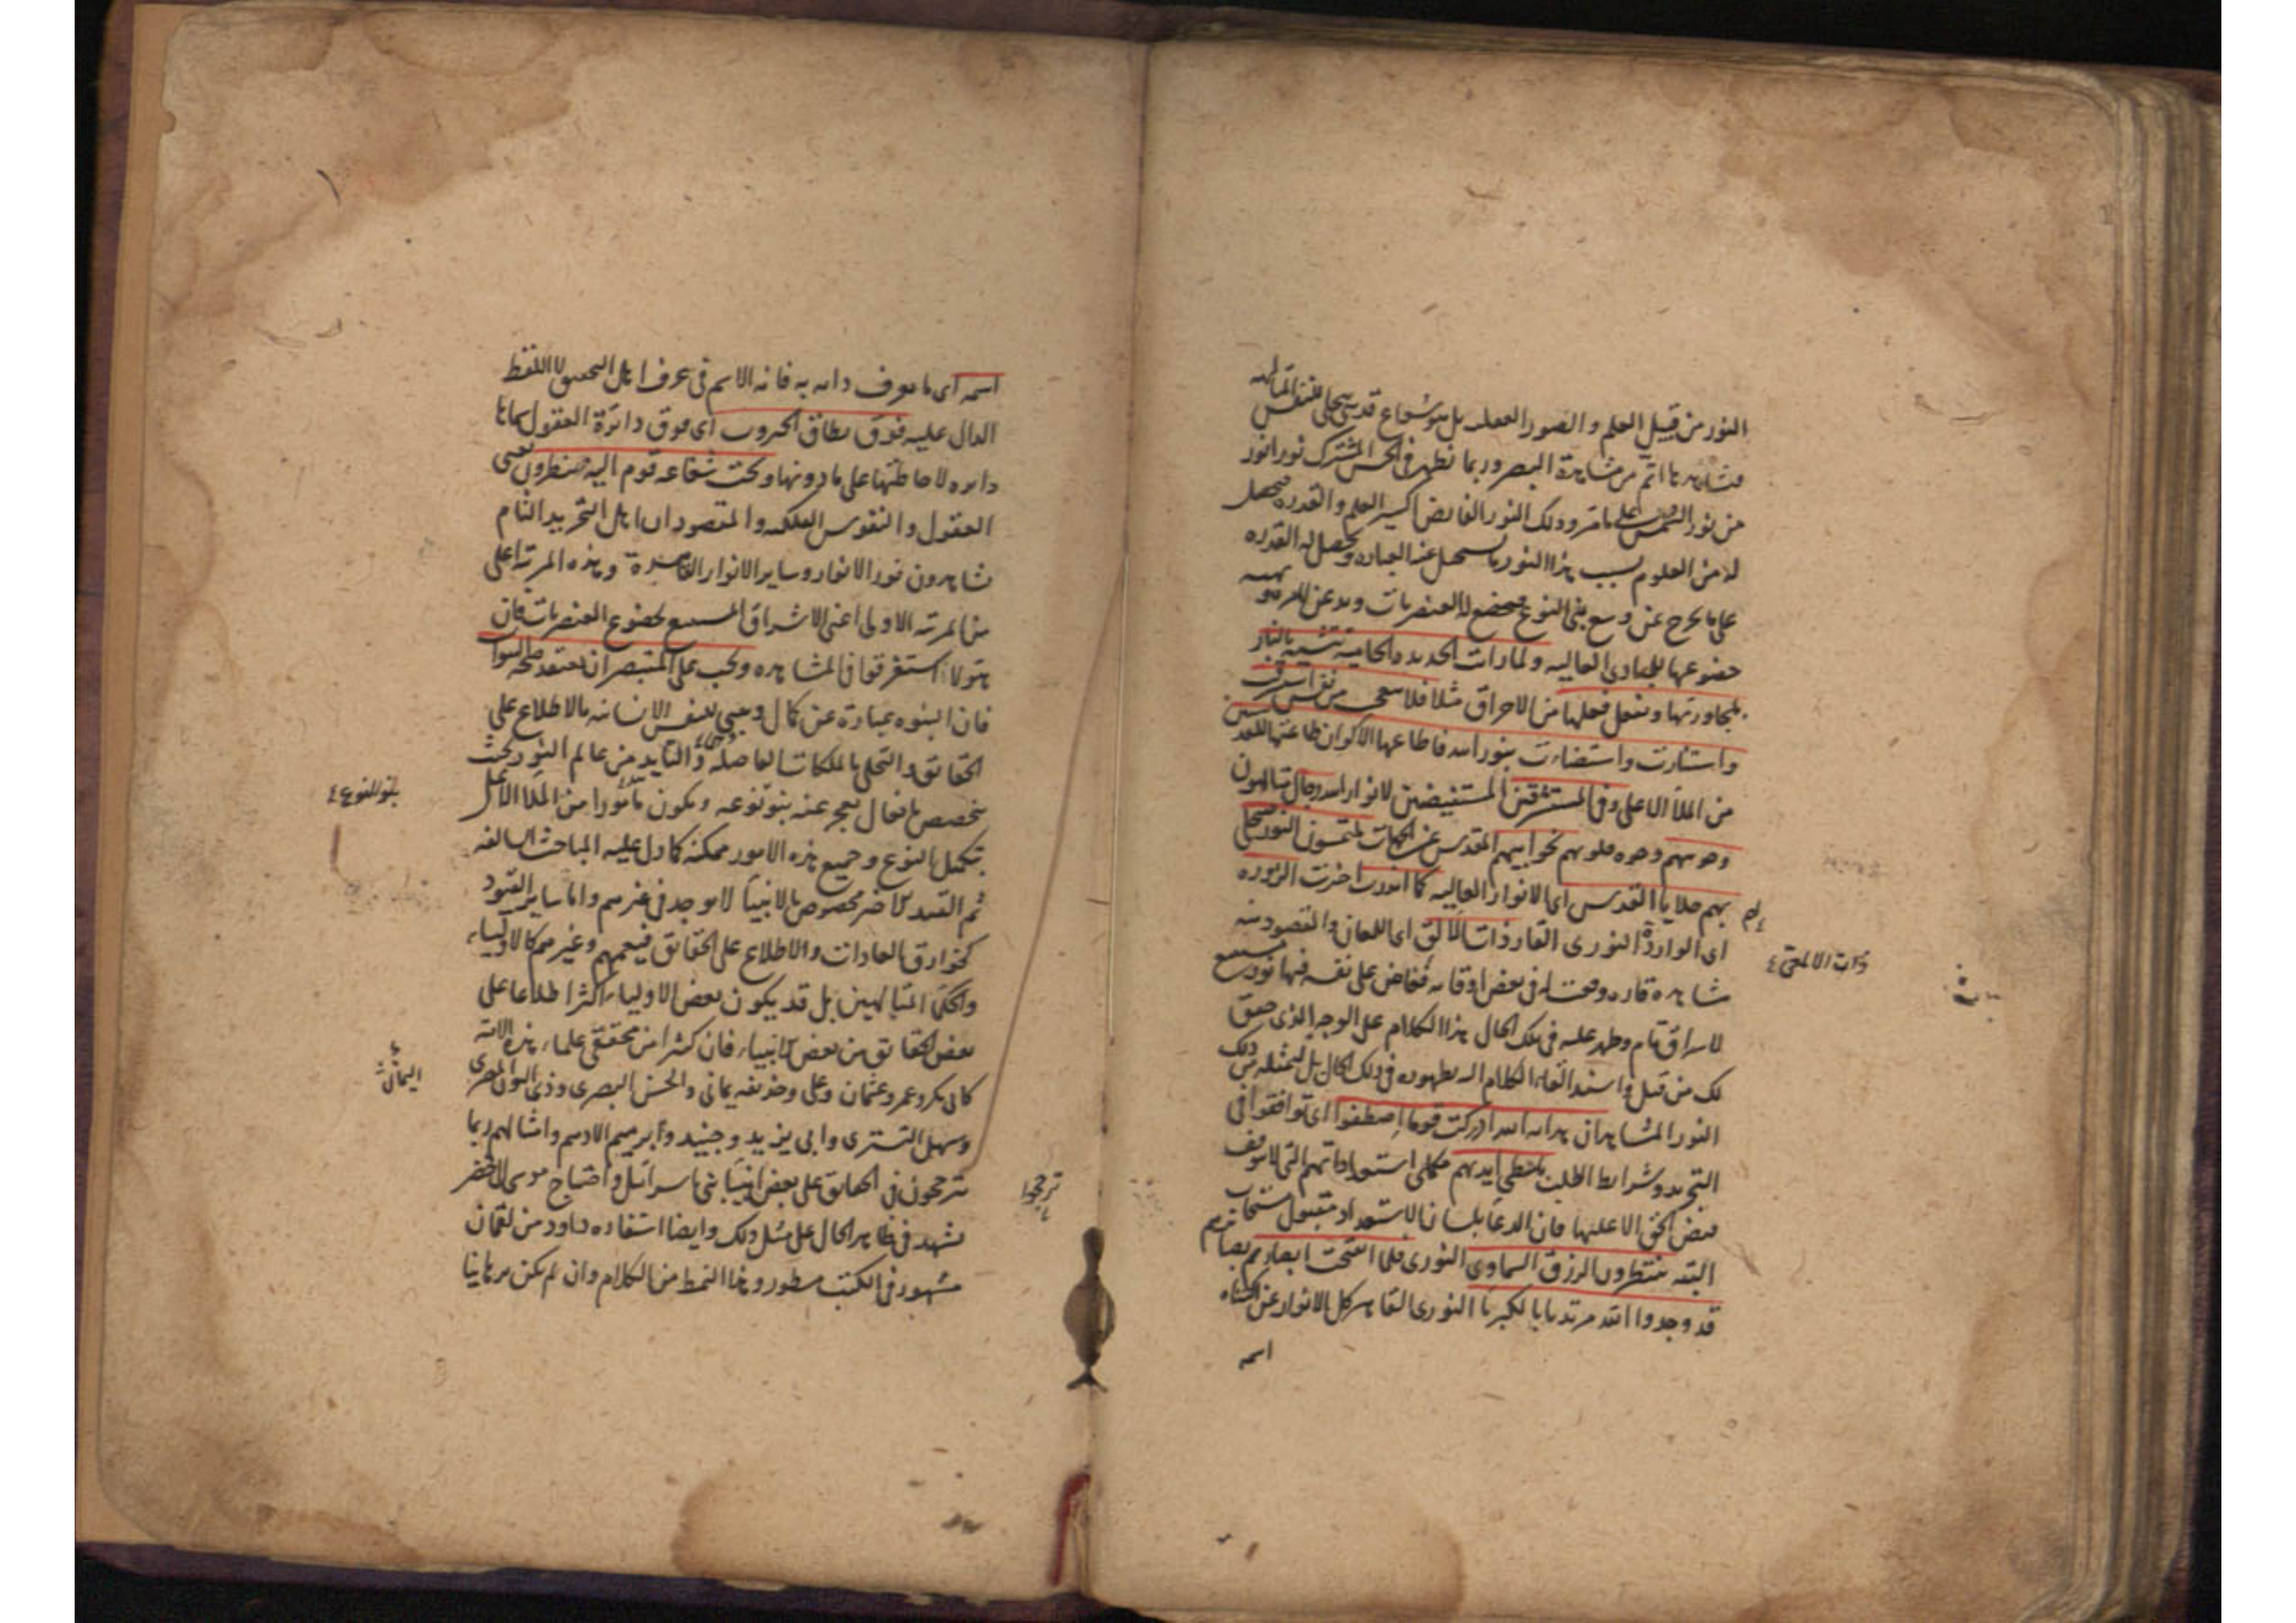 النور من قبيل العلم و الصور العقلية بل هو شعاع قدسي يتجلى للنفس المتألهة
فتشاهدها اتم من مشاهدة البصر وربما تظهر في الحس المشترك نورا انور
من نور الشمس على ما مر وذلك النور الفايض اكسير العلم والقدرة فيحصل
له من العلوم بسبب هذا النور ما يستحيل عند العبارة ويحصل له القدرة
على ما يخرج عن وسع بنى النوع فيخضع له العنصريات
خضوعها للمبادى العالية ولما رات الحديدة الحامية تتشبه بالنار
لمجاورتها وتفعل فعلها من الاحراق مثلا فلا تتعجب من نفس استشرقت
واستنارت واستضاءت بنور الله فاطاعها الاكوان طاعتها للقديسين
من الملأ الاعلى وفي المستشرقين المستفيضين لانوار الله رجال
وجوههم وجوه قلوبهم نحو ابيهم المقدس عن الجهات يلتمسون النور فيتجلى
بهم جلايا القدس اى الانوار العالية كما اخذت الزورة
اى الواردة النورى القارة ذات الالق اى اللمعان والمقصود منه
فى بعض اوقاته ففاض على نفسه فيها نور
الاشراق تام وظهر عليه فى تلك الحال هذا الكلام على الوجه الذى حقق
لك من قبل واسند القاء الكلام اليه لظهوره فى ذلك الحال بل ليتمثله من ذلك
النور المشاهد ان هداية الله ادركت قوما اصطفوا اى توافقوا فى
التجرد وشرايط الطلب باسطى ايديهم بكمال استعداداتهم التى لا يتوقف
فيض الحق الا عليها فان الدعاء بلسان الاستعداد مقبول مستجاب
البتة ينتظرون الرزق السماوى النورى فلما انفتحت ابصارهم بصايرهم
قد وجدوا الله مرتديا بالكبرياء النورى القاهر كل الانوار عن اكتناه
اسمه
لهم
ذات الالمعى
اسمه اى ما يعرف ذاته به فانه الاسم فى عرف اهل التحقيق لا اللفظ
الدال عليه فوق نطاق الجبروت اى فوق دائرة العقول كانها
دايرة لاحاطتها على ما دونها وتحت شعاعه قوم اليه ينظرون يعنى
العقول والنفوس الفلكية والمقصود ان اهل التجريد التام
يشاهدون نور الانوار وساير الانوار القاهرة وهذه المرتبة اعلى
من المرتبة الاولى اعنى الاشراق المستتبع لخضوع العنصريات فان
هؤلاء استغرقوا فى المشاهدة ويجب على المستبصر ان يعتقد صحة النبوات
فان النبوة عبارة عن كمال وهبى للنفس الانسانية بالاطلاع على
الحقائق والتحلى بالملكات الفاضلة والتأييد من عالم النور بحيث
يتخصص بافعال يعجز عنه بنو نوعه ويكون مأمورا من الملأ الاعلى
بتكميل النوع وجميع هذه الامور ممكنة كما دل عليه المباحث السالفة
ثم القيد الاخير مخصوص بالانبياء لا يوجد فى غيرهم واما ساير القيود
كخوارق العادات والاطلاع على الحقائق فيعمهم وغيرهم كالاولياء
والحكماء المتألهين بل قد يكون بعض الاولياء اكثر اطلاعا على
بعض الحقائق من بعض الانبياء فان كثيرا من محققى علماء هذه الامة
كابى بكر وعمر وعثمان وعلى وحذيفه يمانى والحسن البصرى وذى النون المصرى
وسهل التسترى وابى يزيد وجنيد وابرهيم الادهم وامثالهم ربما
يترجحون فى الحقايق على بعض انبياء بنى اسرائيل واحتياج موسى الى الخضر
يشهد فى ظاهر الحال على مثل ذلك وايضا استفادة داود من لقمان
مشهور فى الكتب مسطور وهذا النمط من الكلام وان لم يكن برهانيا
بنو النوع
اليمان
ترجحوا